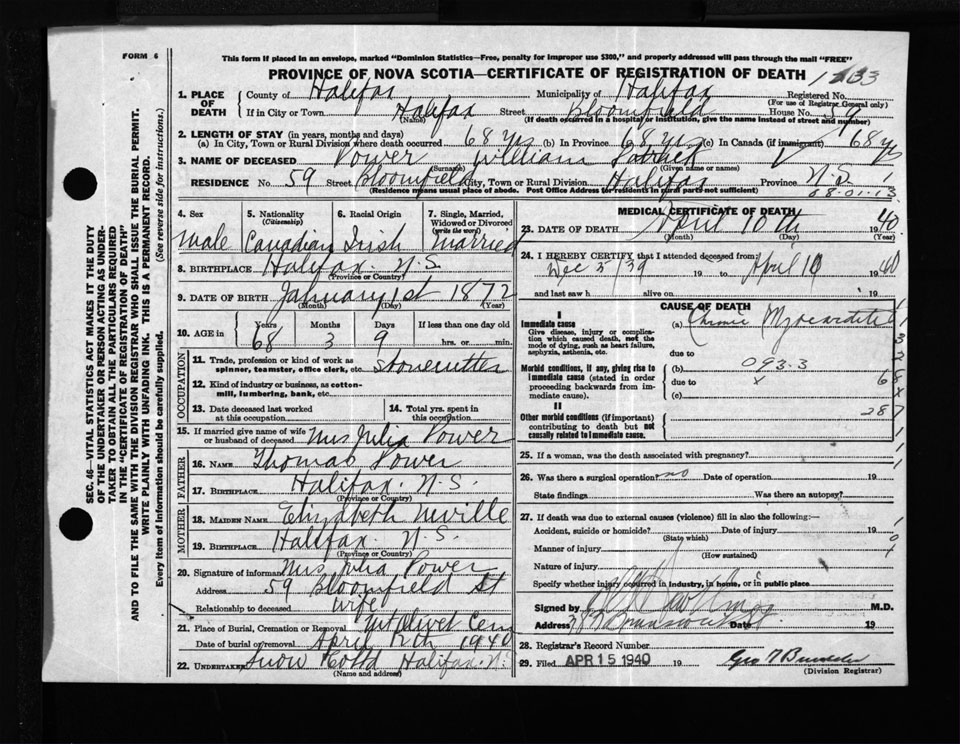 FORM 6
This form if placed in an envelope, marked "Dominion Statistics—Free, penalty for improper use $300," and properly addressed will pass through the mail "FREE"
PROVINCE OF NOVA SCOTIA—CERTIFICATE OF REGISTRATION OF DEATH
1. PLACE OF DEATH County of Halifax Municipality of Halifax Registered No.
(For use of Registrar General only)
If in City or Town Halifax Street Bloomfield House No. 59
(Name) (If death occurred in a hospital or institution, give the name instead of street and number)
2. LENGTH OF STAY (in years, months and days)
(a) In City, Town or Rural Division where death occurred 68 yrs (b) In Province 68 yrs (c) In Canada (if immigrant) 68 yrs
3. NAME OF DECEASED Power William Patrick
(Surname) (Given name or names)
RESIDENCE No. 59 Street Bloomfield City, Town or Rural Division Halifax Province N.S.
(Residence means usual place of abode. Post Office Address for residents in rural parts not sufficient)
08-01-13
4. Sex Male
5. Nationality (Citizenship) Canadian
6. Racial Origin Irish
7. Single, Married, Widowed or Divorced (write the word) Married
8. BIRTHPLACE Halifax N.S.
(Province or Country)
9. DATE OF BIRTH January 1st 1872
(Month) (Day) (Year)
10. AGE in Years 68 Months 3 Days 9 If less than one day old
hrs. or min.
OCCUPATION
11. Trade, profession or kind of work as spinner, teamster, office clerk, etc. Stonecutter
12. Kind of industry or business, as cotton-mill, lumbering, bank, etc.
13. Date deceased last worked at this occupation
14. Total yrs. spent in this occupation
15. If married give name of wife or husband of deceased Mrs Julia Power
FATHER
16. NAME Thomas Power
17. BIRTHPLACE Halifax N.S.
(Province or Country)
MOTHER
18. MAIDEN NAME Elizabeth Neville
19. BIRTHPLACE Halifax N.S.
(Province or Country)
20. Signature of informant Mrs Julia Power
Address 59 Bloomfield St
Relationship to deceased wife
21. Place of Burial, Cremation or Removal Mt Olivet Cem
Date of burial or removal April 12th 1940
22. UNDERTAKER Snow Halifax N.S.
(Name and address)
MEDICAL CERTIFICATE OF DEATH
23. DATE OF DEATH April 10th 1940
(Month) (Day) (Year)
24. I HEREBY CERTIFY that I attended deceased from
Dec 5/39 19 to April 10 1940
and last saw h alive on 19
CAUSE OF DEATH
I
Immediate cause
Give disease, injury or complication which caused death, not the mode of dying, such as heart failure, asphyxia, asthenia, etc.
(a) Chronic Myocarditis
due to
Morbid conditions, if any, giving rise to immediate cause (stated in order proceeding backwards from immediate cause).
(b) 093.3
due to x
(c)
II
Other morbid conditions (if important) contributing to death but not causally related to immediate cause.
287
25. If a woman, was the death associated with pregnancy?
26. Was there a surgical operation? no Date of operation 19
State findings Was there an autopsy?
27. If death was due to external causes (violence) fill in also the following:—
Accident, suicide or homicide? Date of injury 19
(State which)
Manner of injury
(How sustained)
Nature of injury
Specify whether injury occurred in industry, in home, or in public place
Signed by M.D.
Address Date 19
28. Registrar's Record Number
29. Filed APR 15 1940 19
(Division Registrar)
SEC. 46—VITAL STATISTICS ACT MAKES IT THE DUTY
OF THE UNDERTAKER OR PERSON ACTING AS UNDER-
TAKER TO OBTAIN ALL THE PARTICULARS REQUIRED
IN THE "CERTIFICATE OF REGISTRATION OF DEATH"
AND TO FILE THE SAME WITH THE DIVISION REGISTRAR WHO SHALL ISSUE THE BURIAL PERMIT.
WRITE PLAINLY WITH UNFADING INK. THIS IS A PERMANENT RECORD.
Every item of information should be carefully supplied. (See reverse side for instructions.)